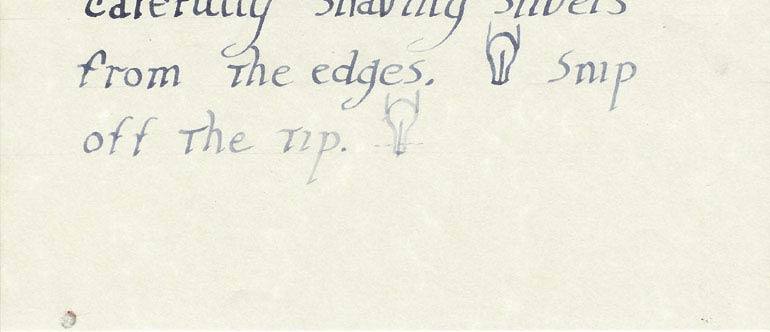 carefully shaving slivers
from the edges. Snip
off the tip.